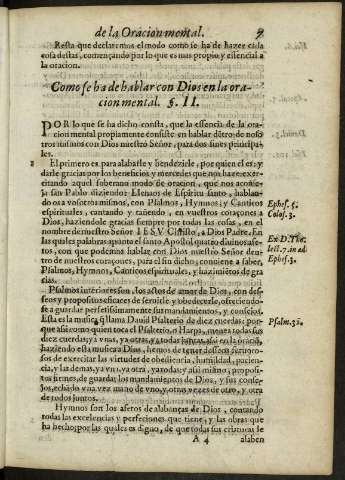 de la Oracion mental. 9
Resta que declaremos el modo como se ha de hazer cada
cosa destas, començando por lo que es mas propio y essencial a
la oracion.
Como se ha de hablar con Dios en la ora-
cion mental. §. II.
POR lo que se ha dicho consta, que la essencia de la ora-
cion mental propiamente consiste en hablar dẽtro de noso
tros mismos con Dios nuestro Señor, para dos fines principa-
les.
El primero es para alabarle y bendezirle, por quien el es: y
darle gracias por los beneficios y mercedes que nos haze: exer-
citando aquel soberano modo de oracion, que nos aconse
ja san Pablo diziendo: Llenaos de Espiritu santo, hablan-
do a vosotros mismos, con Psalmos, Hymnos, y Canticos
espirituales, cantando y tañendo, en vuestros coraçones a
Dios, haziendole gracias siempre por todas las cosas, en el
nombre de nuestro Señor IESV Christo, a Dios Padre. En
las quales palabras apunta el santo Apostol quatro diuinos afe-
tos, con que podemos hablar con Dios nuestro Señor den-
tro de nuestros coraçones, para el fin dicho, conuiene a saber,
Psalmos, Hymnos, Canticos espirituales, y hazimiẽtos de gra
cias.
Ephes. 5.
Colos. 3.
Ex D. Tho.
lect. 7. in ad
Ephes. 5.
Psalmos interiores son, los actos de amor de Dios, con des-
seos y propositos eficaces de seruirle y obedecerle, ofreciendo-
se a guardar perfetissimamente sus mandamientos, y consejos.
Esta es la musica q̃ llama Dauid Psalterio de diez cuerdas: por-
que assi como quien toca el Psalterio, o Harpa, menea todas sus
diez cuerdas, ya vnas, ya otras, y todas juntas, assi en la oraciõ,
haziendo esta musica a Dios, hemos de tener desseos feruoro-
sos de exercitar las virtudes de obediencia, humildad, pacien-
cia, y las demas, ya vna, ya otra, ya todas: y assi mismo, proposi-
tos firmes, de guardar los mandamientos de Dios, y sus conse-
jos, echãdo vna vez mano de vno, y otras vezes de otro, y otra
de todos juntos.
Psalm. 32.
Hymnos son los afetos de alabanças de Dios, contando
todas las excelencias y perfeciones que tiene, y las obras que
ha hecho, por las quales es digno, de que todas sus criaturas le
A 4 alaben